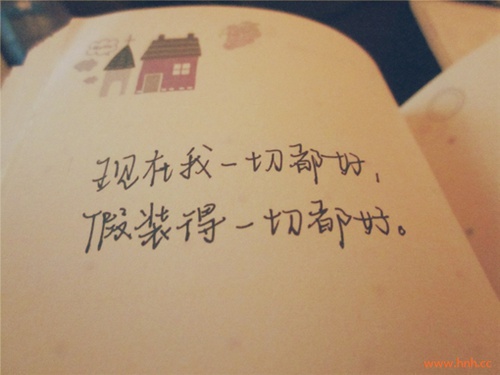 现在我一切都好，
假装得一切都好。
www.hqh.cc